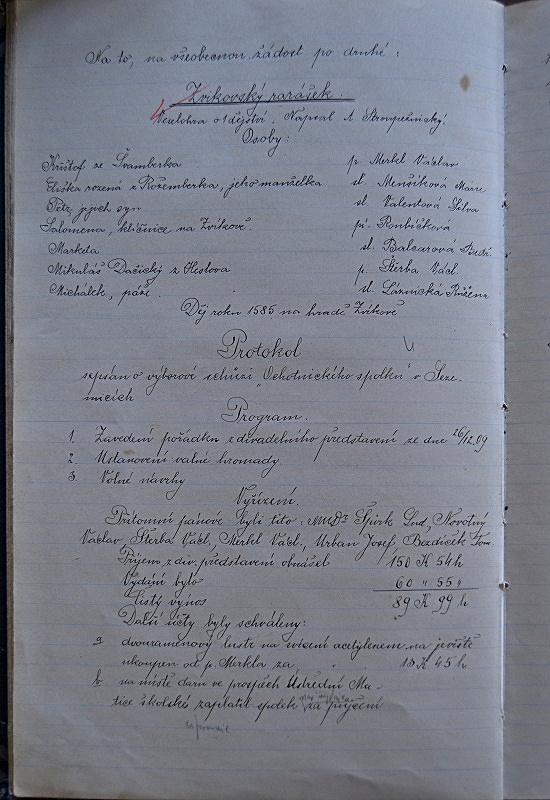 Na to, na všeobecnou žádost po druhé:
Zvíkovský rarášek.
Veselohra o 1 dějství. Napsal L Stroupežnický.
Osoby:
Krištof ze Švamberka p. Merkl Václav
Eliška rozená z Rožemberka, jeho manželka sl. Menšíková Marie
Petr jejich syn sl. Valentová Silva
Salomena, klíčnice na Zvíkově pí. Roubíčková
Marketa sl. Balcarová
Mikuláš Dačický z Heslova p. Štěrba Václ.
Michálek, páže sl. Láznická Růžena
Děj roku 1585 na hradě Zvíkově
Protokol
sepsán o výborové schůzi „Ochotnického spolku" v Seze-
micích
Program.
1. Zavedení pořádku z divadelního představení ze dne 26/12.09
2. Ustanovení valné hromady
3. Volné návrhy
Vyřízení.
Přítomni pánové byli tito: MUDr Špírk Lud, Novotný
Václav, Štěrba Václ, Merkl Václ, Urban Josef, Bezdíček Fr.
Příjem z div. představení obnášel 150 K 54 h
Vydání bylo 60 " 55 "
Čistý výnos 89 K 99 h
Další účty byly schváleny:
a dvouramenový lustr na svícení acetylenem na jeviště
ukoupen od p. Merkla za " " 18 K 45 h
b na místě daru ve prospěch Ústřední Ma-
tice školské zaplatil spolek za půjčení